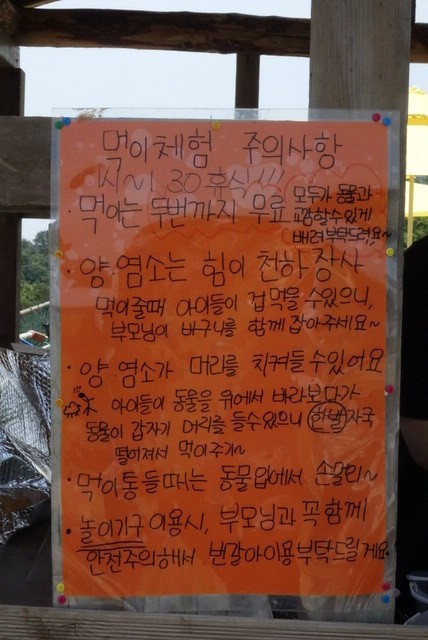 먹이체험 주의사항
1시~1:30 휴식!!!
· 먹이는 두번까지 무료 모두가 동물과
교감할수있게
배려부탁드려요~
· 양·염소는 힘이 천하장사
먹이줄때 아이들이 겁먹을 수있으니,
부모님이 바구니를 함께 잡아주세요~
· 양·염소가 머리를 치켜들수있어요
아이들이 동물을 위에서 바라보다가
동물이 갑자기 머리를 들수있으니 한발자국
떨어져서 먹이주기~
· 먹이통들때는 동물입에서 손멀리~
· 놀이기구이용시, 부모님과 꼭함께
안전주의해서 번갈아이용부탁드릴게요.